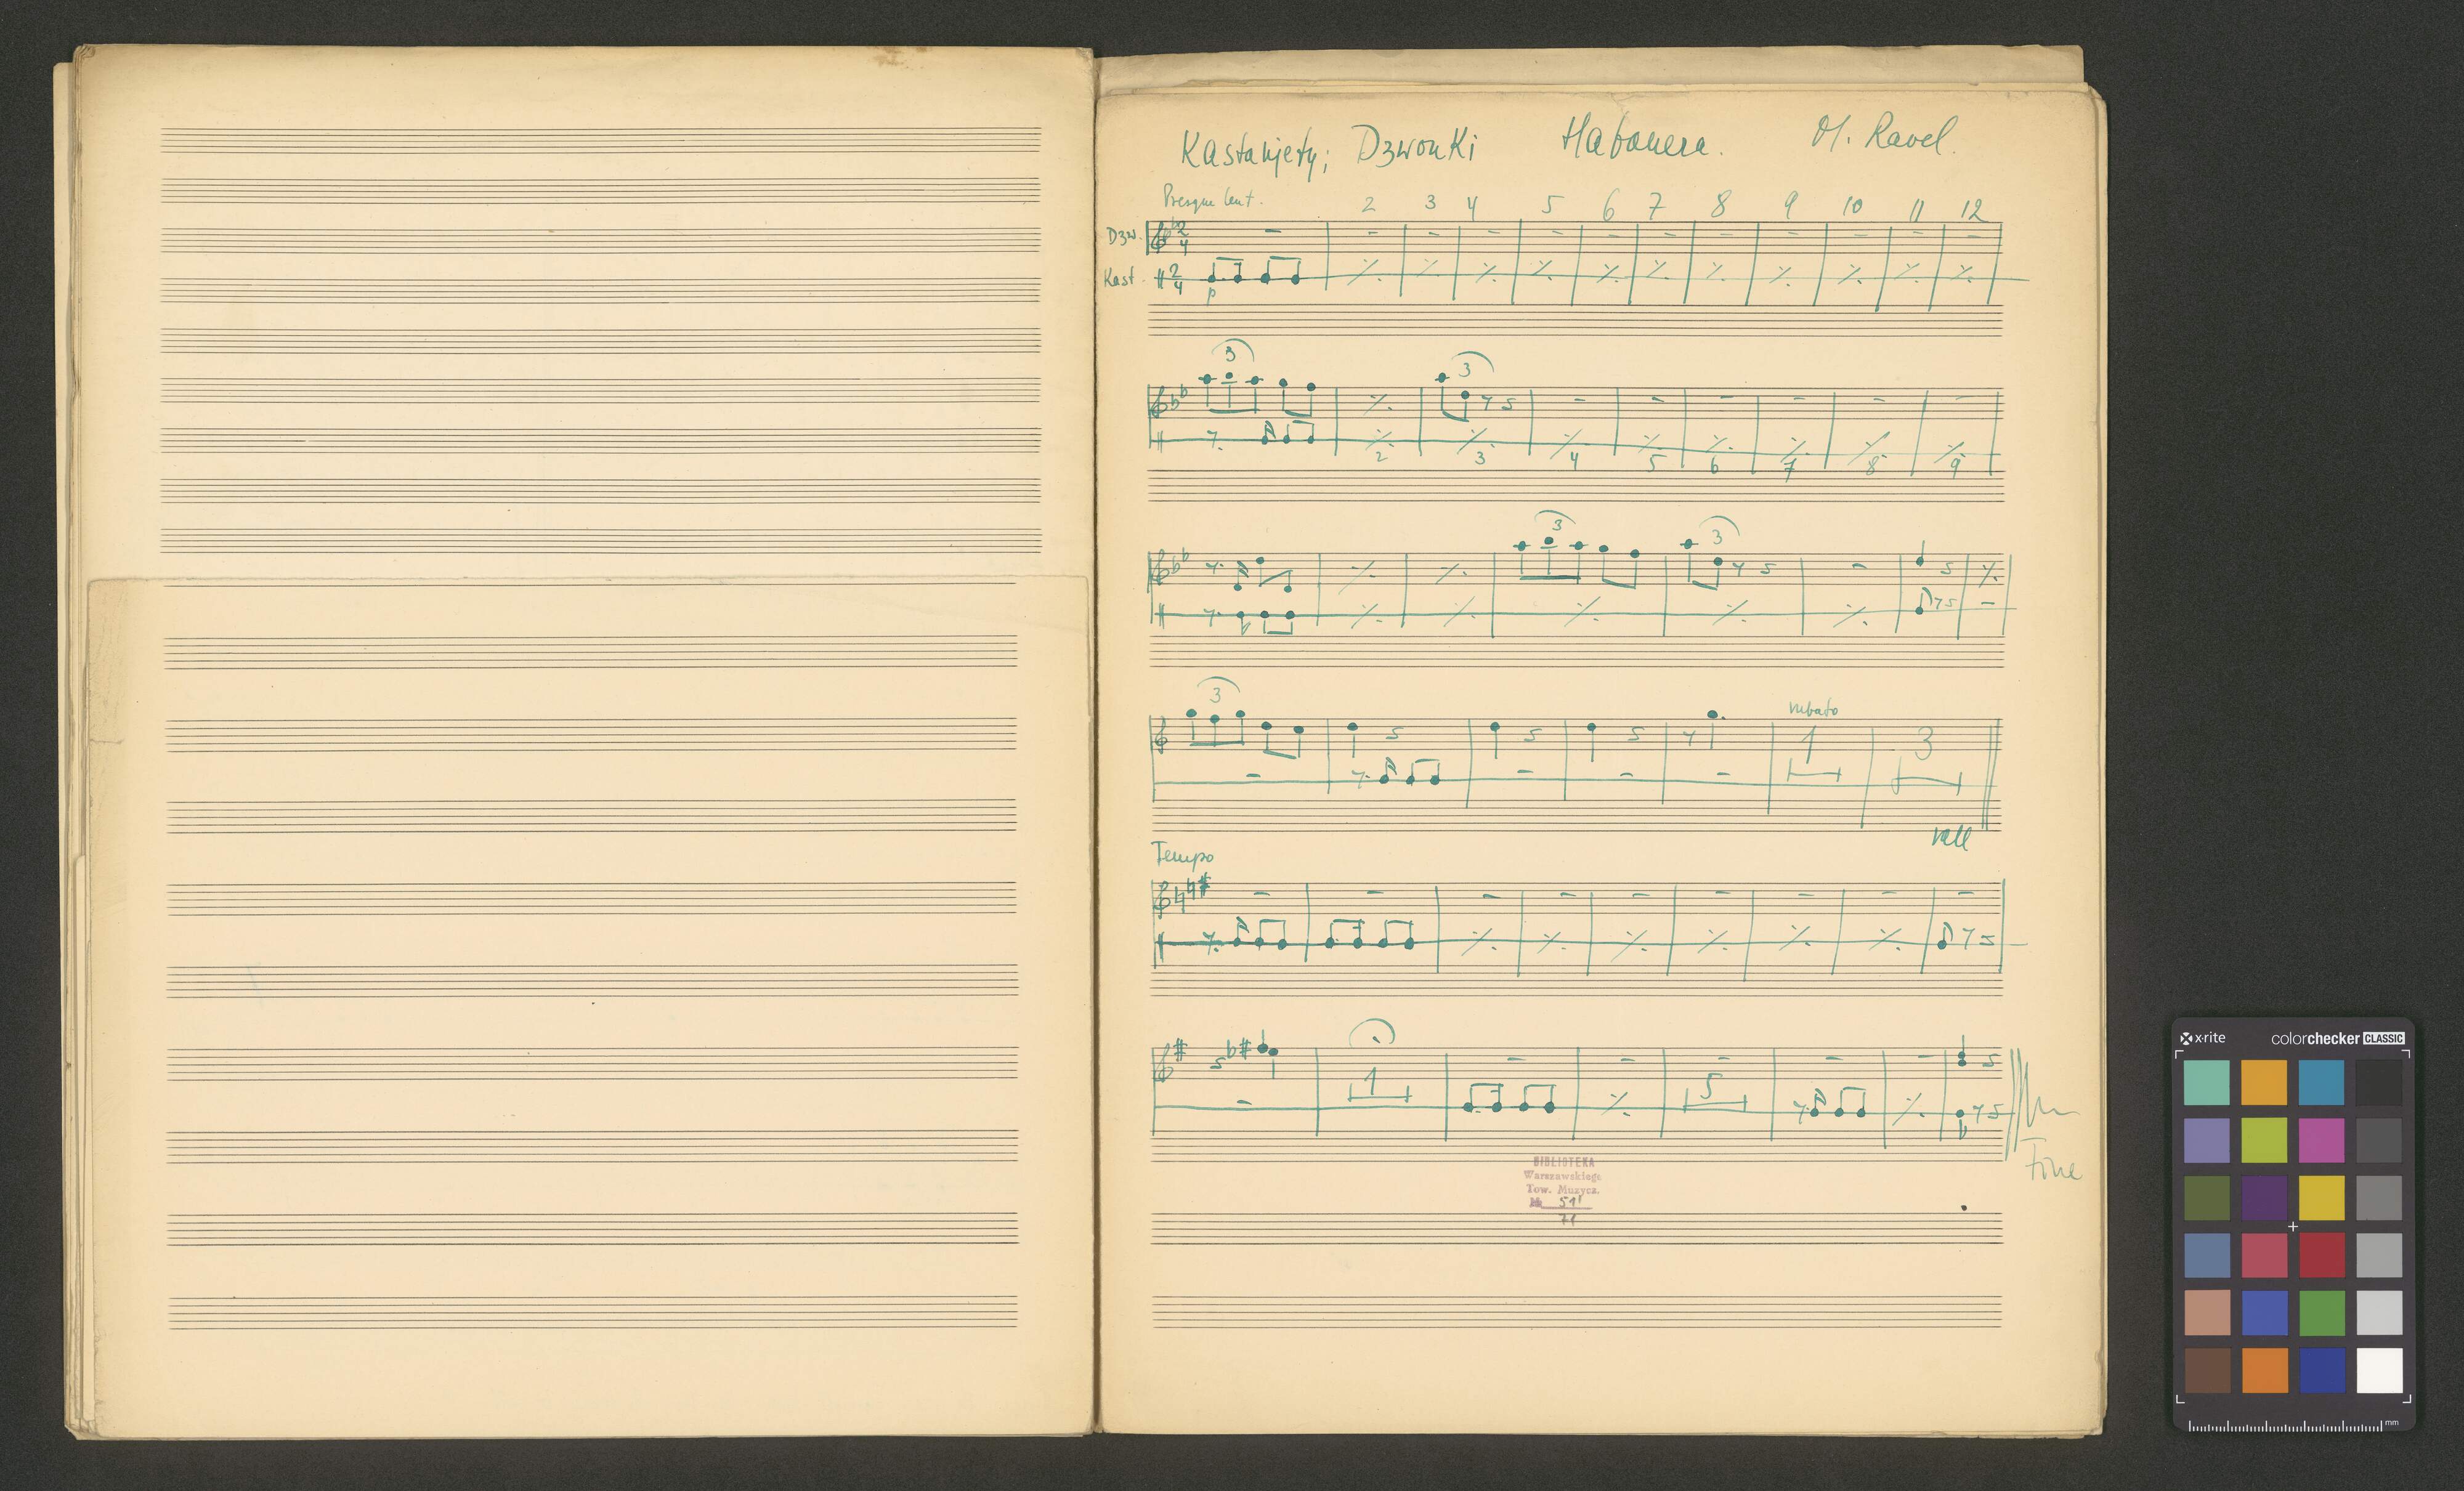 Kastanjety; Dzwonki Habanera. M. Ravel.
Presque lent. 2 3 4 5 6 7 8 9 10 11 12
Dzw. 2 4
Kast. 2 4
p
3 3
2 3 4 5 6 7 8 9
3 3
3 rubato
1 3
rall
Tempo
1 5
Fine
BIBLIOTEKA
Warszawskiego
Tow. Muzycz.
№ 511
71
x-rite colorchecker CLASSIC
mm